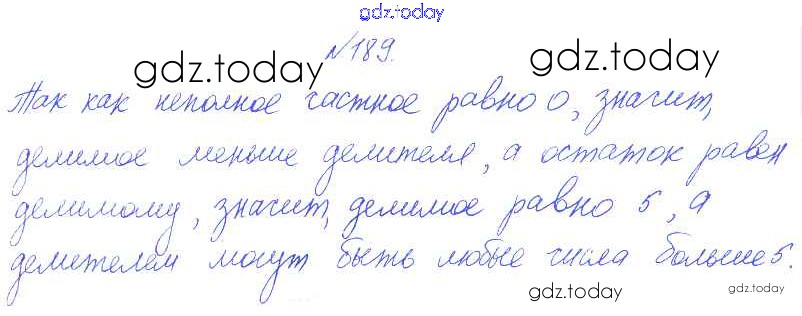 gdz.today
№189.
gdz.today gdz.today
Так как неполное частное равно 0, значит,
делимое меньше делителя, а остаток равен
делимому, значит, делимое равно 5, а
делителем могут быть любые числа больше 5.
gdz.today gdz.today